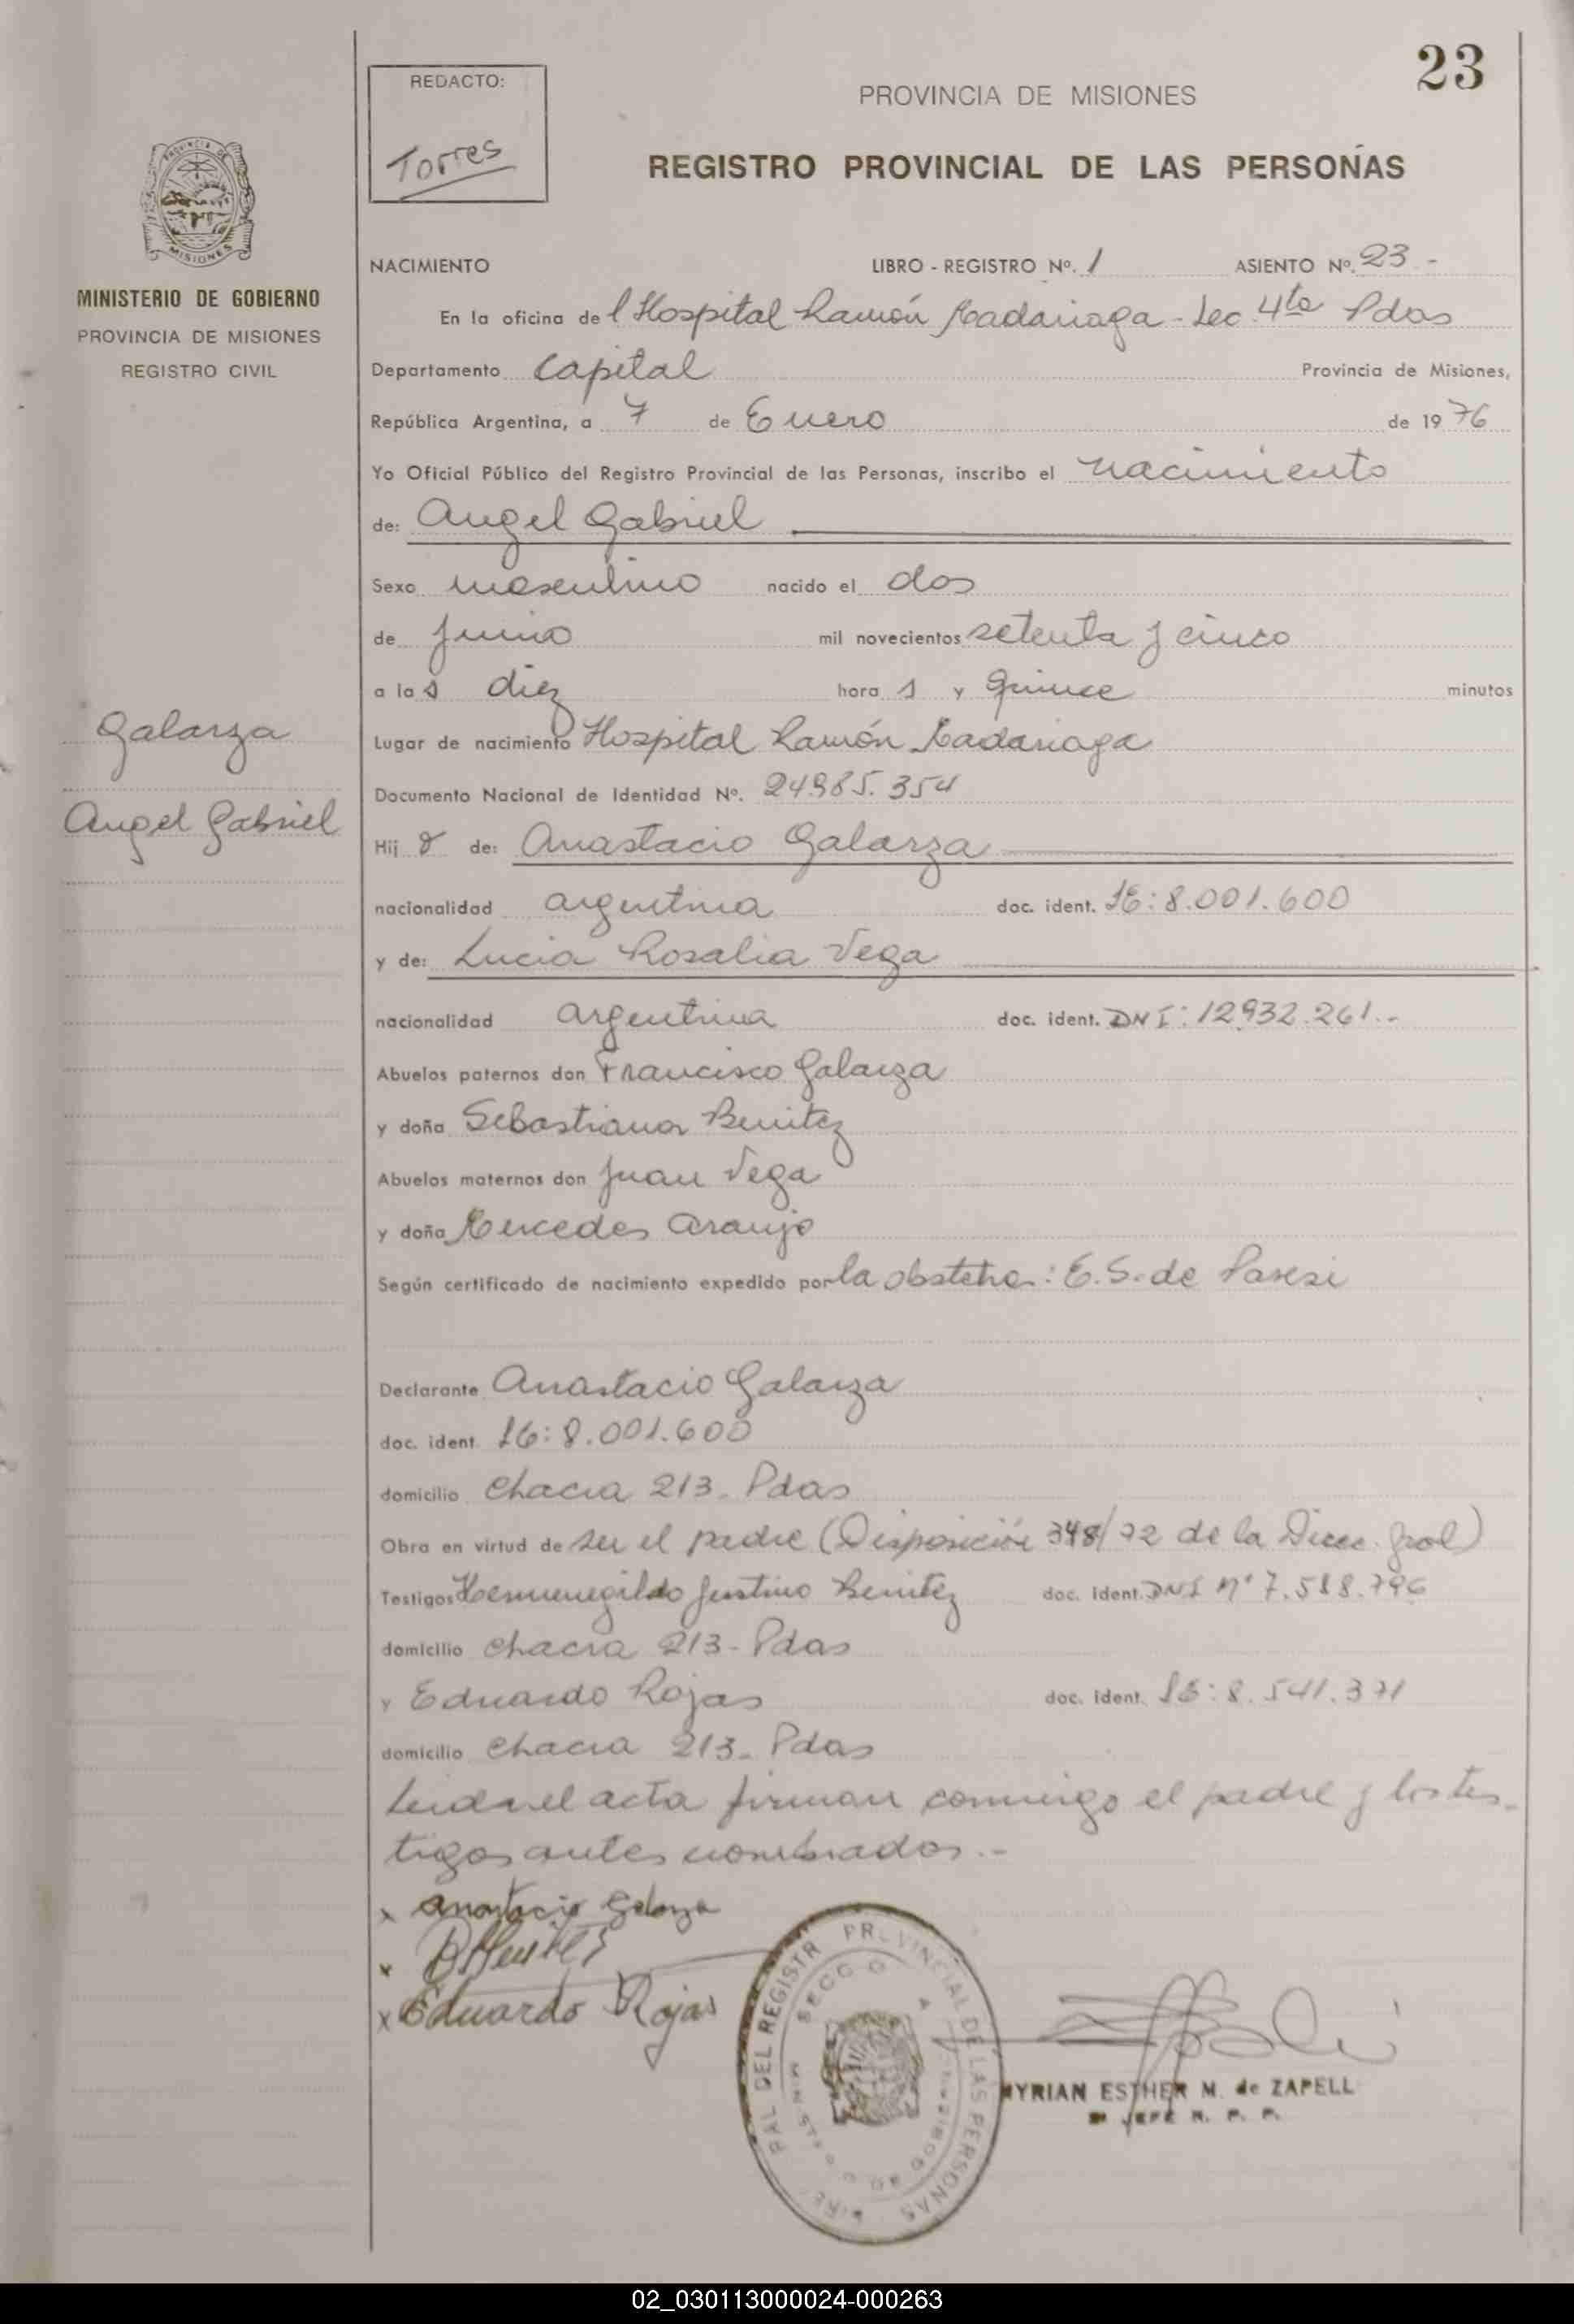 23
REDACTO:
Torres
PROVINCIA DE MISIONES
REGISTRO PROVINCIAL DE LAS PERSONAS
PROVINCIA DE
MISIONES
MINISTERIO DE GOBIERNO
PROVINCIA DE MISIONES
REGISTRO CIVIL
NACIMIENTO LIBRO - REGISTRO Nº. 1 ASIENTO Nº. 23 -
En la oficina del Hospital Ramón Madariaga - Sec. 4ta Pdas
Departamento Capital Provincia de Misiones,
República Argentina, a 7 de Enero de 1976
Yo Oficial Público del Registro Provincial de las Personas, inscribo el nacimiento
de: Angel Gabriel
Sexo masculino nacido el dos
de Junio mil novecientos setenta y cinco
a las diez horas y quince minutos
Galarza
Angel Gabriel
Lugar de nacimiento Hospital Ramón Madariaga
Documento Nacional de Identidad Nº. 24985.354
Hijo de: Anastacio Galarza
nacionalidad argentina doc. ident. 8.001.600
y de: Lucia Rosalia Vega
nacionalidad argentina doc. ident. DNI: 12.932.261.-
Abuelos paternos don Francisco Galarza
y doña Sebastiana Benitez
Abuelos maternos don Juan Vega
y doña Mercedes Araujo
Según certificado de nacimiento expedido por la obstetra: E.S. de
Declarante Anastacio Galarza
doc. ident. 8.001.600
domicilio Chacra 213 - Pdas
Obra en virtud de ser el padre (Disposición 348/72 de la Direc. Gral)
Testigos Hermenegildo Justino Benitez doc. ident. DNI Nº 7.588.796
domicilio Chacra 213 - Pdas
y Eduardo Rojas doc. ident. 8.541.371
domicilio Chacra 213 - Pdas
Leida el acta firman conmigo el padre y los tes-
tigos antes nombrados.-
x Anastacio Galarza
x
x Eduardo Rojas
PAL DEL REGISTR PROVINCIAL DE LAS PERSONAS
MYRIAN ESTHER M. de ZAPELL
JEFE R. P. P.
02_030113000024-000263